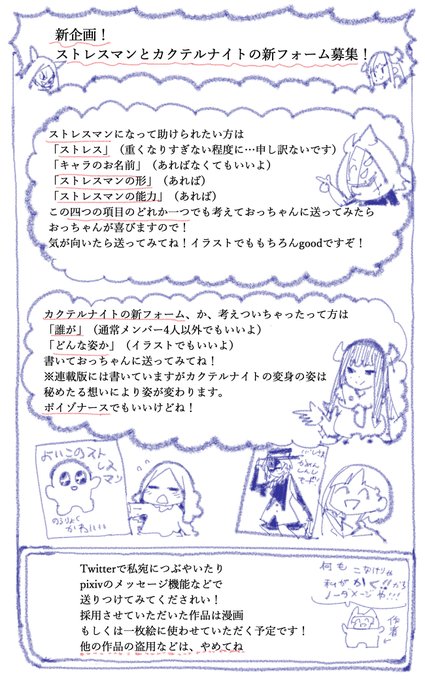 新企画！
ストレスマンとカクテルナイトの新フォーム募集！
ストレスマンになって助けられたい方は
「ストレス」（重くなりすぎない程度に…申し訳ないです）
「キャラのお名前」（あればなくてもいいよ）
「ストレスマンの形」（あれば）
「ストレスマンの能力」（あれば）
この四つの項目のどれか一つでも考えておっちゃんに送ってみたら
おっちゃんが喜びますので！
気が向いたら送ってみてね！イラストでももちろんgoodですぞ！
カクテルナイトの新フォーム、か、考えついちゃったって方は
「誰が」（通常メンバー4人以外でもいいよ）
「どんな姿か」（イラストでもいいよ）
書いておっちゃんに送ってみてね！
※連載版には書いていますがカクテルナイトの変身の姿は
秘めたる想いにより姿が変わります。
ボイゾナースでもいいけどね！
よいこのスト
レス
マン
のうりょく
かわいい
Twitterで私宛につぶやいたり
pixivのメッセージ機能などで
送りつけてみてくだされい！
採用させていただいた作品は漫画
もしくは一枚絵に使わせていただく予定です！
他の作品の盗用などは、やめてね
何も こなけりゃ
私がかく!!から
ノーダメージや!!!
作者